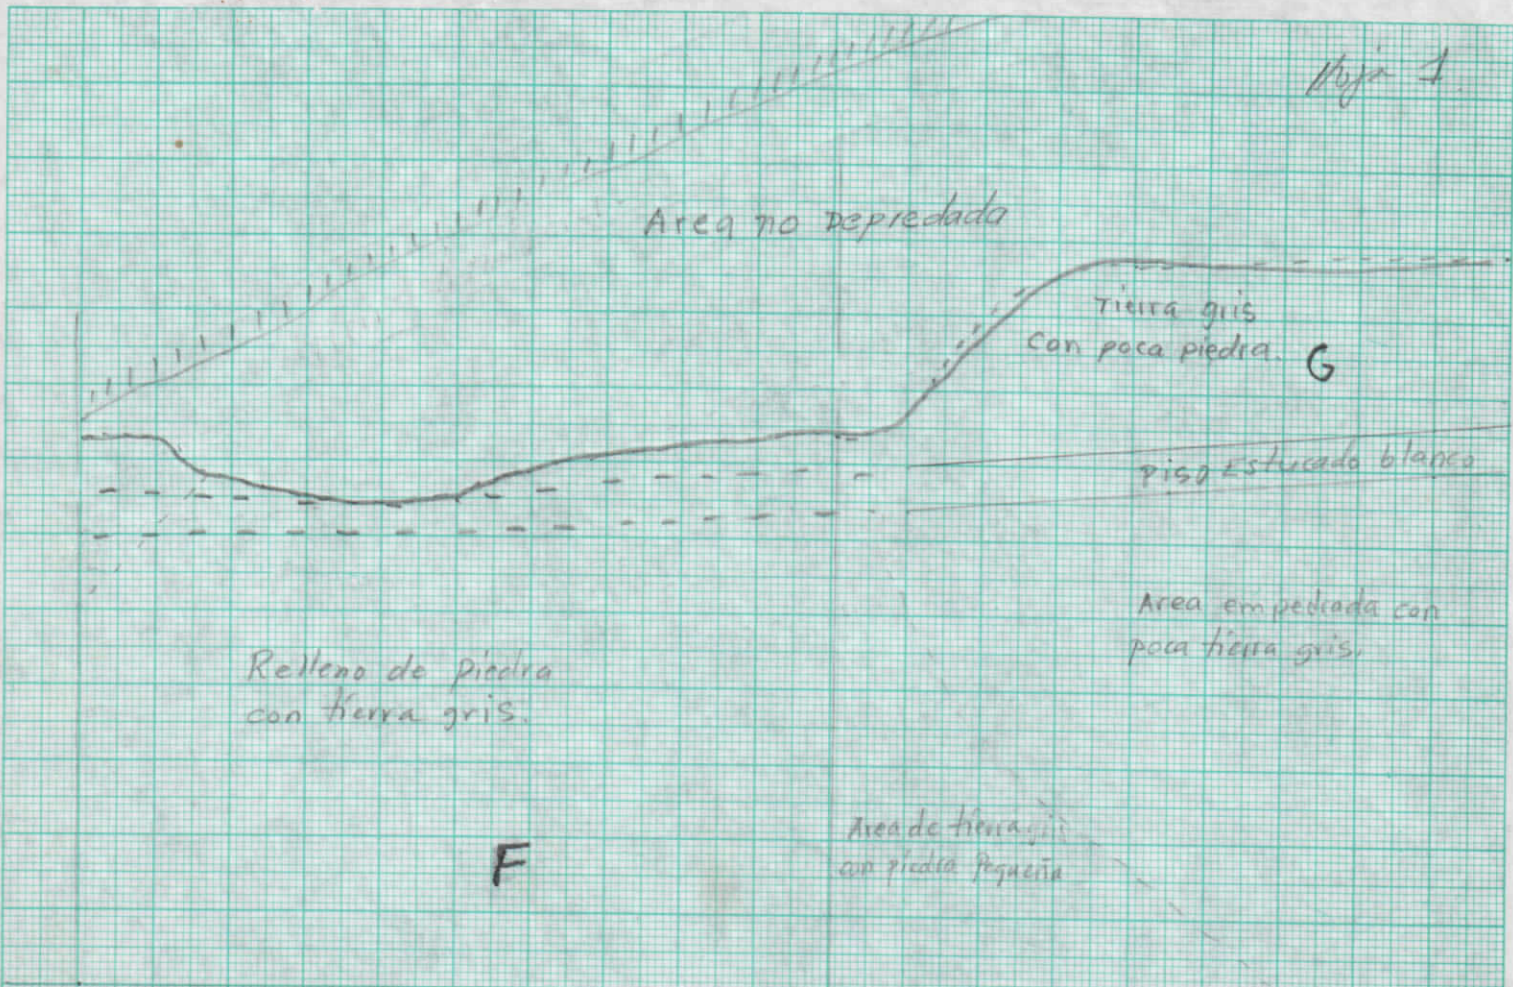 Hoja 1.
Area no Depredada
Tierra gris
con poca piedra. G
piso Estucado blanco
Area empedrada con
poca tierra gris.
Relleno de piedra
con tierra gris.
Area de tierra gris
con piedra Pequeña
F